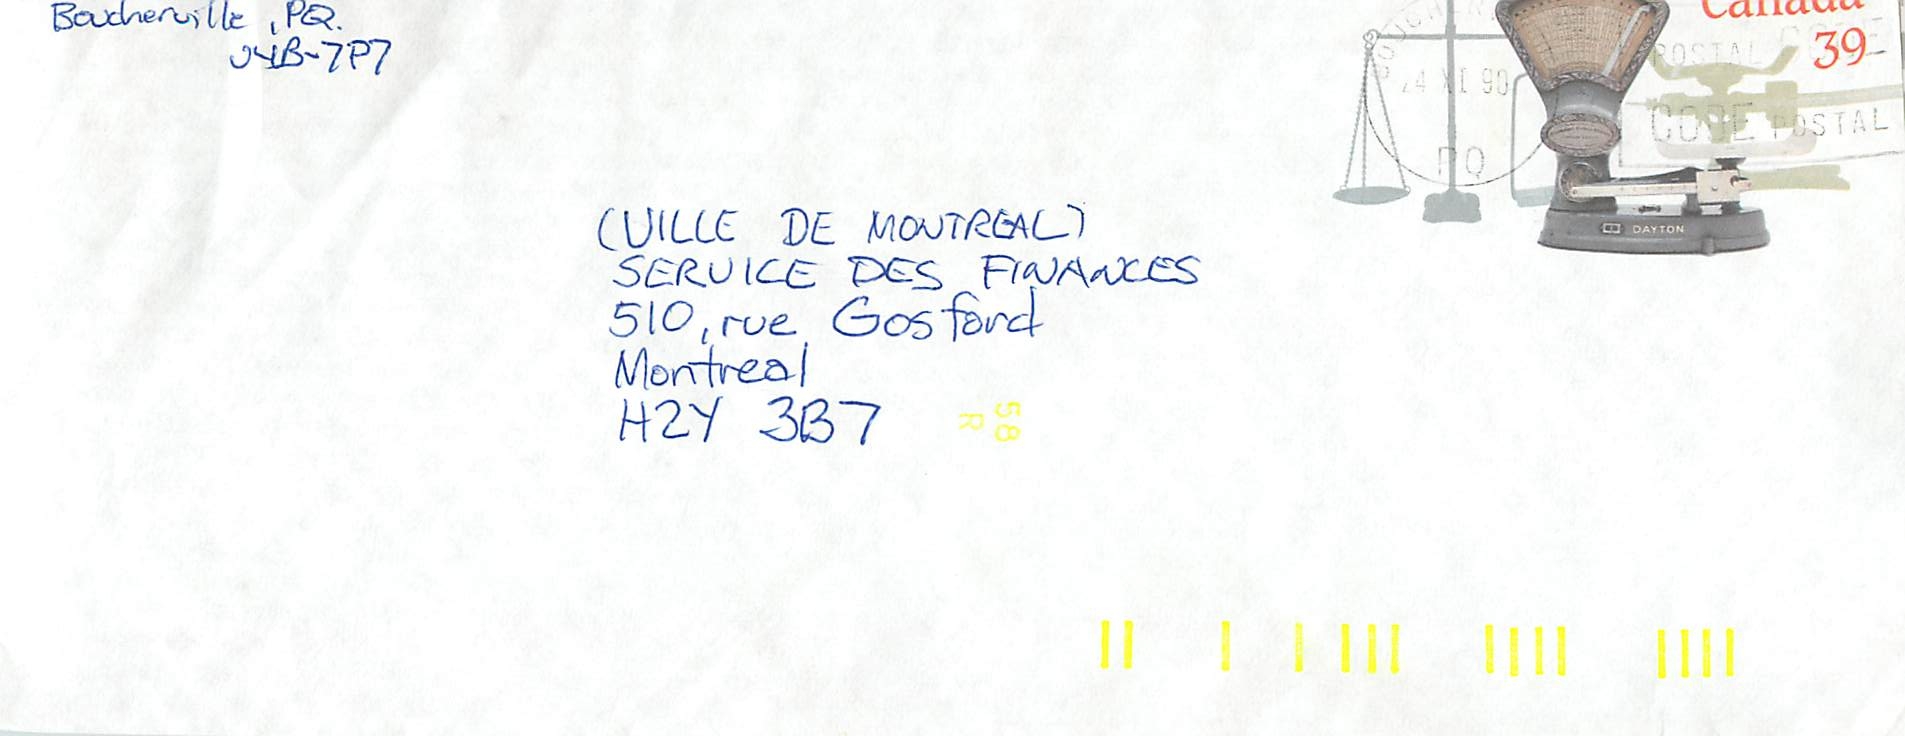 Boucherville, PQ.
J4B-7P7
Canada
39
BOUCHER
24 XI 90
PQ
POSTAL CODE
CODE POSTAL
DAYTON
(VILLE DE MONTREAL)
SERVICE DES FINANCES
510, rue Gosford
Montreal
H2Y 3B7
58
R